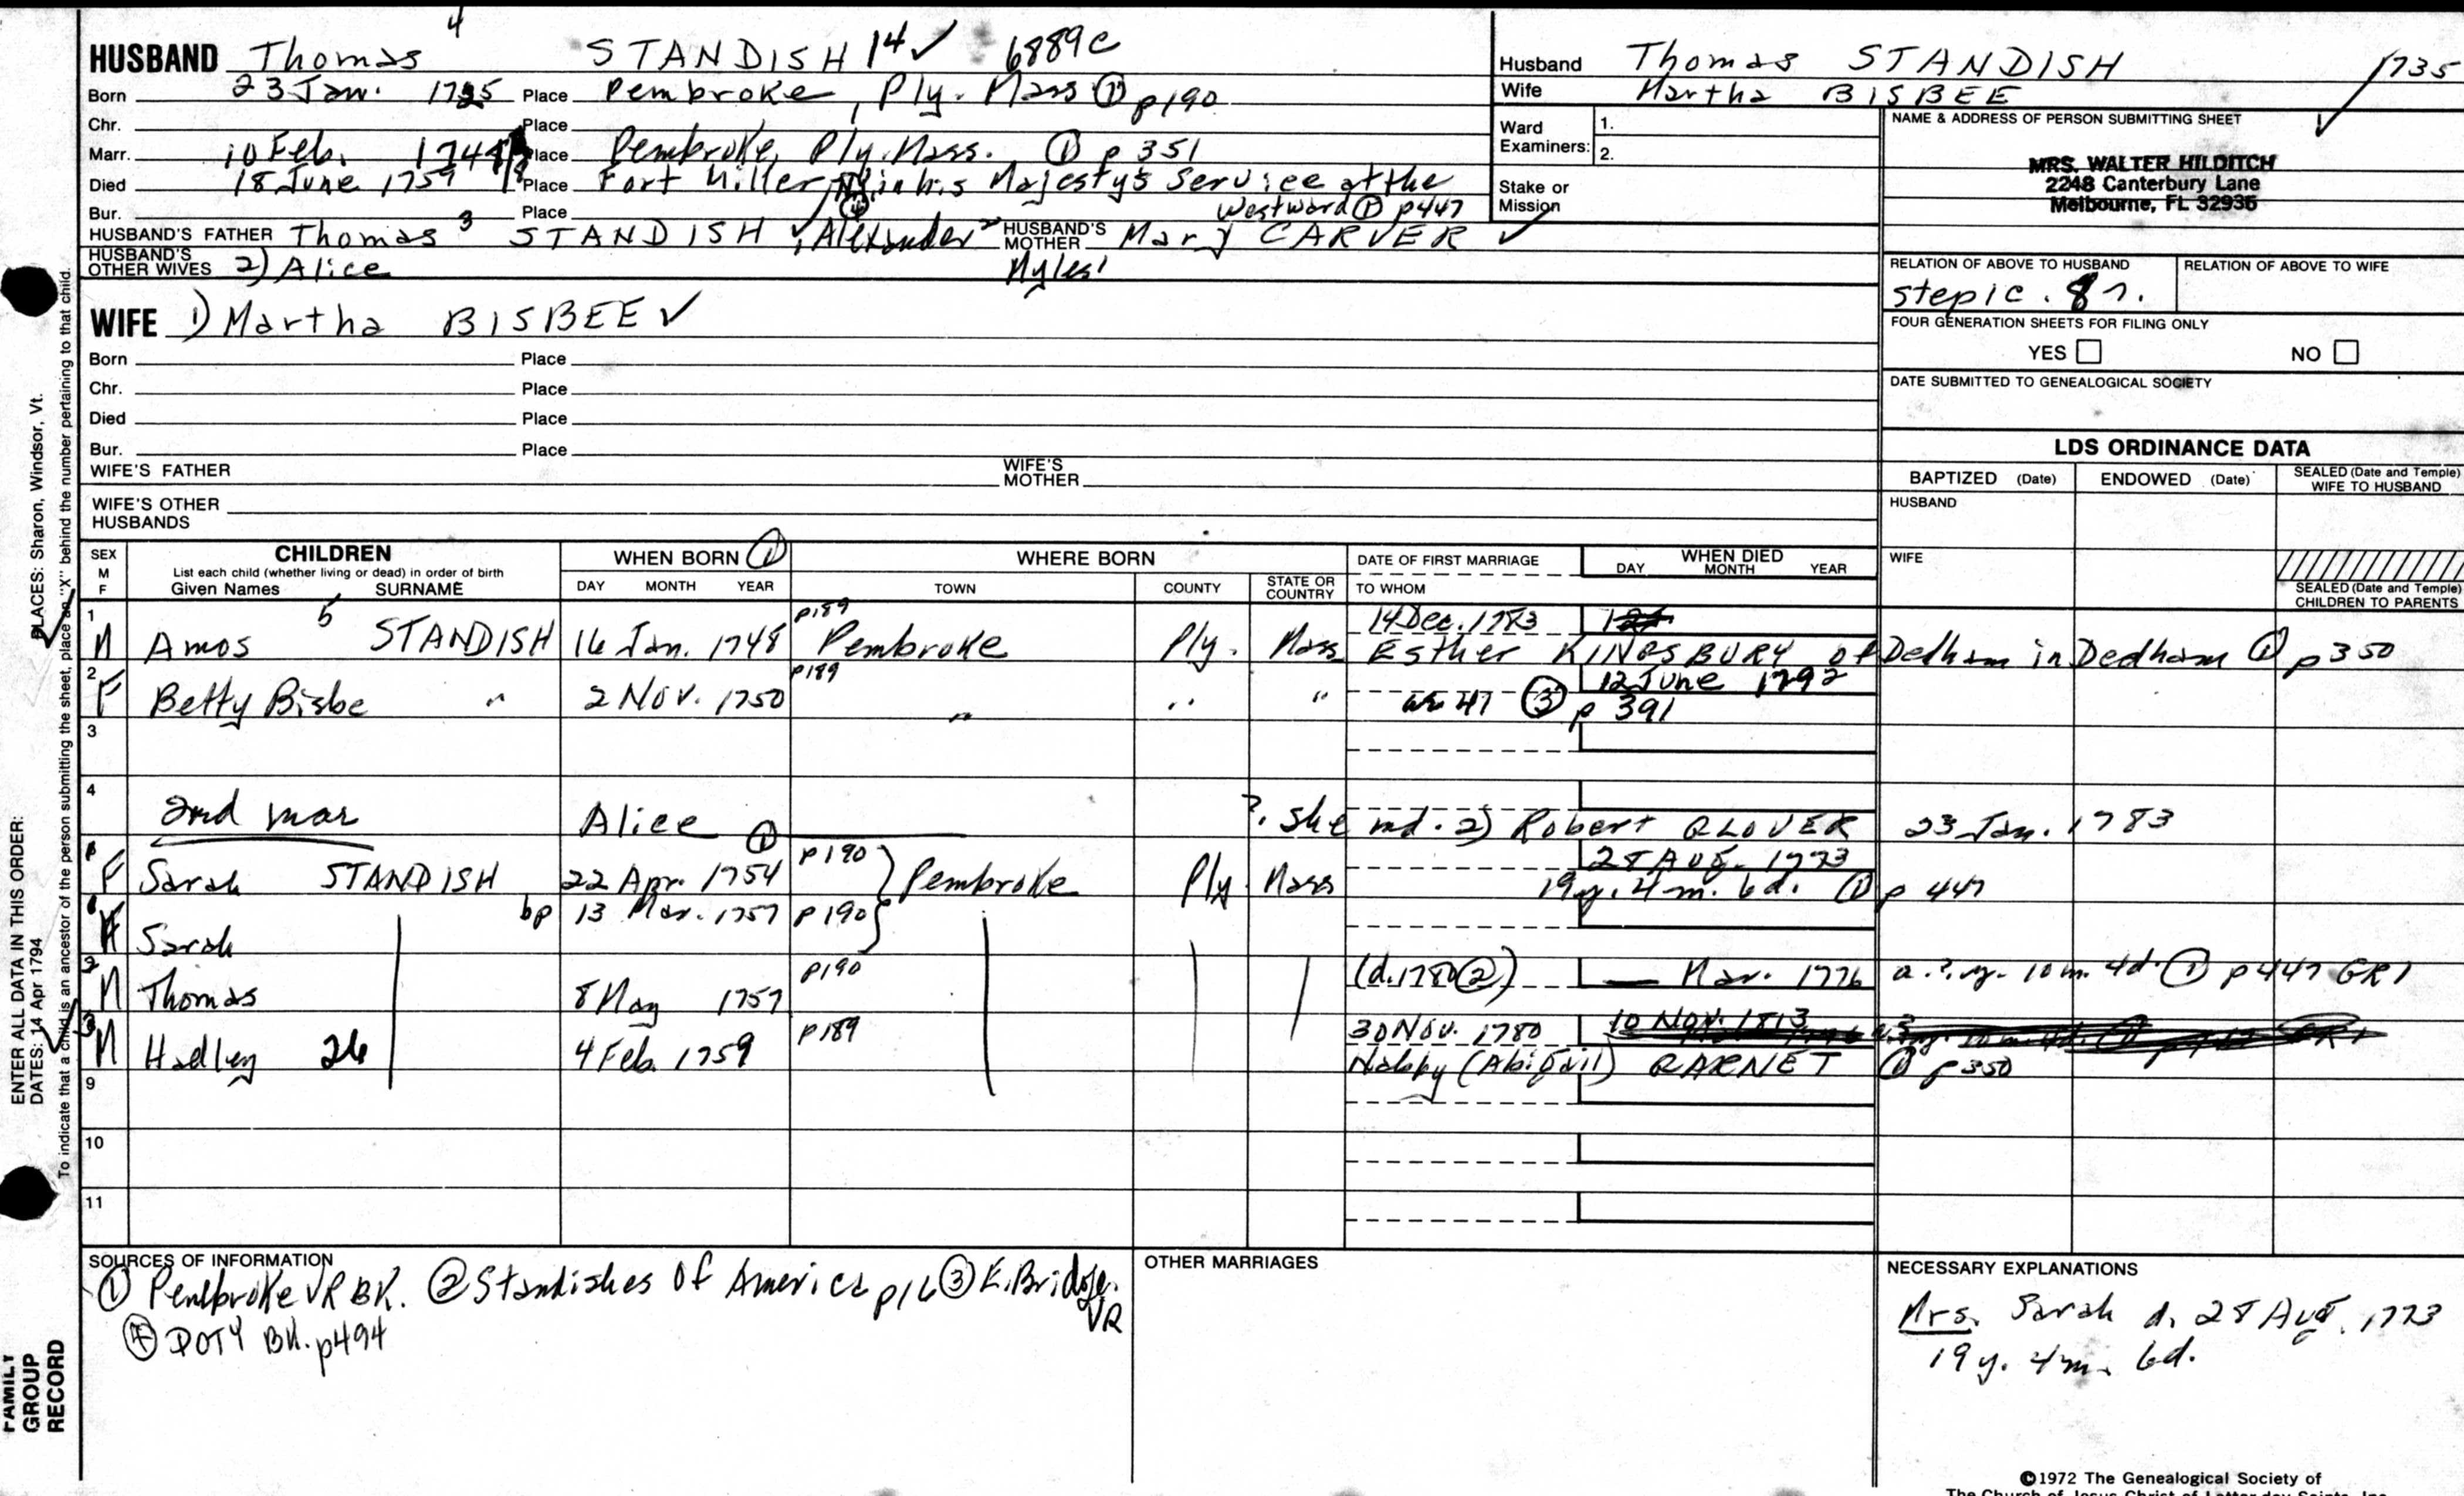 4
HUSBAND Thomas STANDISH 14✓ 6889c
Born 23 Jan. 1725 Place Pembroke, Ply. Mass ① p190
Chr. Place
Marr. 10 Feb. 1748 Place Pembroke, Ply. Mass. ① p 351
Died 18 June 1759 Place Fort Miller, in his Majesty's Service at the
Bur. Place ④ Westward ① p447
HUSBAND'S FATHER Thomas 3 STANDISH ✓, Alexander 2 HUSBAND'S MOTHER Mary CARVER ✓
HUSBAND'S OTHER WIVES 2) Alice Myles 1
WIFE 1) Martha BISBEE ✓
Born Place
Chr. Place
Died Place
Bur. Place
WIFE'S FATHER WIFE'S MOTHER
WIFE'S OTHER HUSBANDS
Husband Thomas STANDISH 1735
Wife Martha BISBEE
Ward Examiners: 1.
2.
Stake or Mission
NAME & ADDRESS OF PERSON SUBMITTING SHEET ✓
MRS. WALTER HILDITCH
2248 Canterbury Lane
Melbourne, FL 32935
RELATION OF ABOVE TO HUSBAND RELATION OF ABOVE TO WIFE
step 1c. 8r.
FOUR GENERATION SHEETS FOR FILING ONLY
YES NO
DATE SUBMITTED TO GENEALOGICAL SOCIETY
LDS ORDINANCE DATA
BAPTIZED (Date) ENDOWED (Date) SEALED (Date and Temple) WIFE TO HUSBAND
HUSBAND
WIFE
SEALED (Date and Temple) CHILDREN TO PARENTS
SEX M F CHILDREN WHEN BORN ① WHERE BORN DATE OF FIRST MARRIAGE WHEN DIED
List each child (whether living or dead) in order of birth
Given Names SURNAME DAY MONTH YEAR TOWN COUNTY STATE OR COUNTRY TO WHOM DAY MONTH YEAR
1 5 p189 14 Dec. 1783
M Amos STANDISH 16 Jan. 1748 Pembroke Ply. Mass Esther KINGSBURY of Dedham in Dedham ① p350
2 p189 12 June 1792
F Betty Bisbe " 2 Nov. 1750 " " " ae 41 ③ p 391
3
4
2nd mar Alice ① ? She md. 2) Robert GLOVER 23 Jan. 1783
1 p190 28 Aug. 1773
F Sarah STANDISH 22 Apr. 1754 Pembroke Ply Mass 19y. 4m. 6d. ① p 447
bp 13 Mar. 1757 p190
F Sarah
2 p190 (d. 1780 ②) Mar. 1776 a. ?. y. 10 m. 4d. ① p447 GR1
M Thomas 8 May 1757
3 p189 30 Nov. 1780 10 Nov. 1813
M Hadley 26 4 Feb. 1759 Nabby (Abigail) BARNET ① p350
9
10
11
SOURCES OF INFORMATION
① Pembroke VR BK. ② Standishes of America p16 ③ E. Bridge. VR
④ DOTY BK. p494
OTHER MARRIAGES
NECESSARY EXPLANATIONS
Mrs. Sarah d. 28 Aug. 1773
19 y. 4m. 6d.
©1972 The Genealogical Society of
The Church of Jesus Christ of Latter-day Saints, Inc.
ENTER ALL DATA IN THIS ORDER:
DATES: 14 Apr 1794
PLACES: Sharon, Windsor, Vt.
To indicate that a child is an ancestor of the person submitting the sheet, place an "X" behind the number pertaining to that child.
FAMILY GROUP RECORD